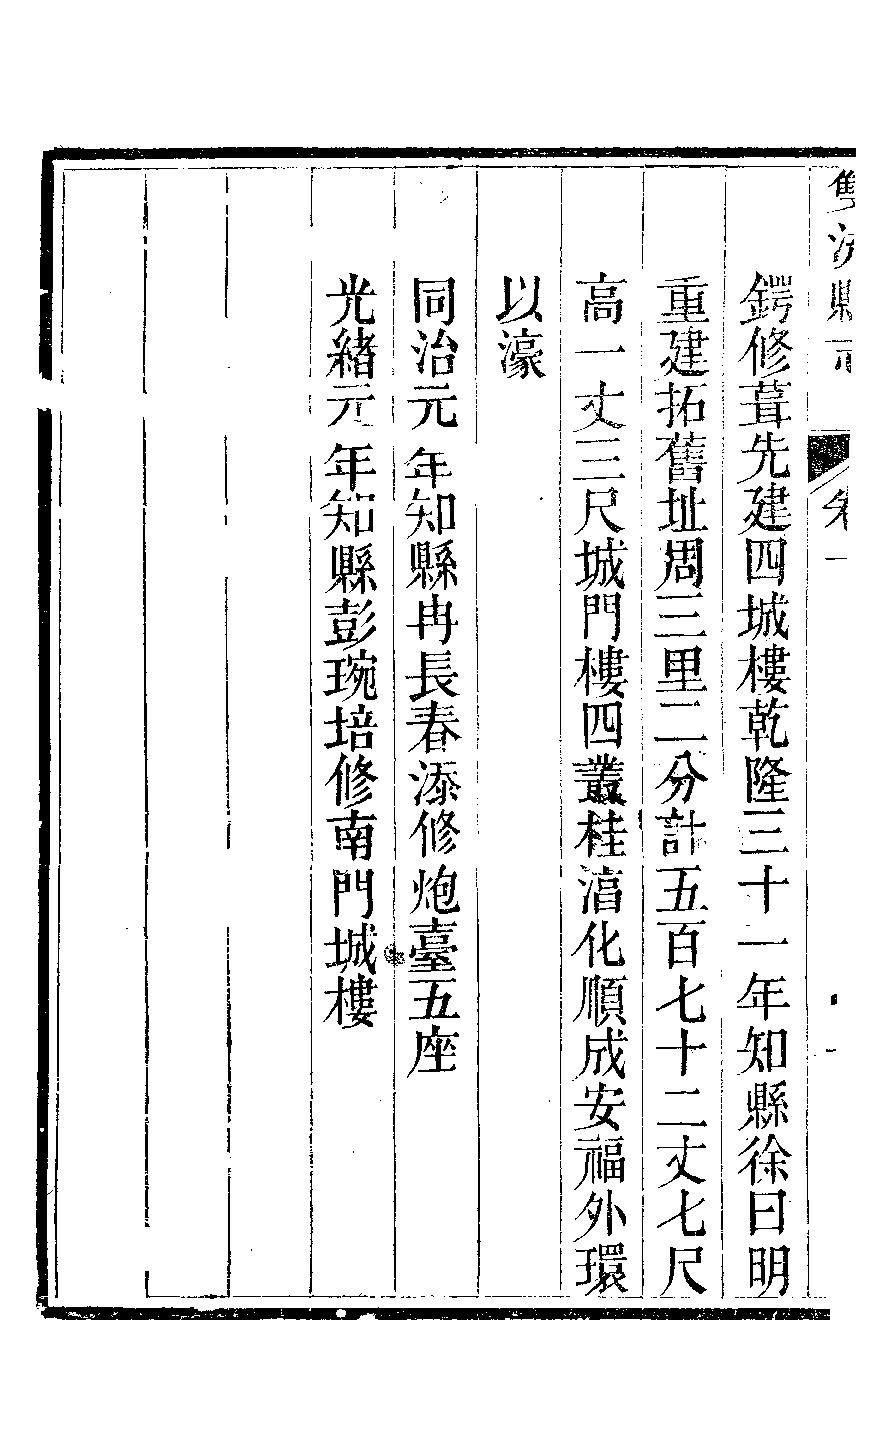 雙流縣志 卷一
鍔修葺先建四城樓乾隆三十一年知縣徐曰明
重建拓舊址周三里二分計五百七十二丈七尺
高一丈三尺城門樓四叢桂湻化順成安福外環
以濠
同治元年知縣冉長春添修炮臺五座
光緒元年知縣彭琬培修南門城樓